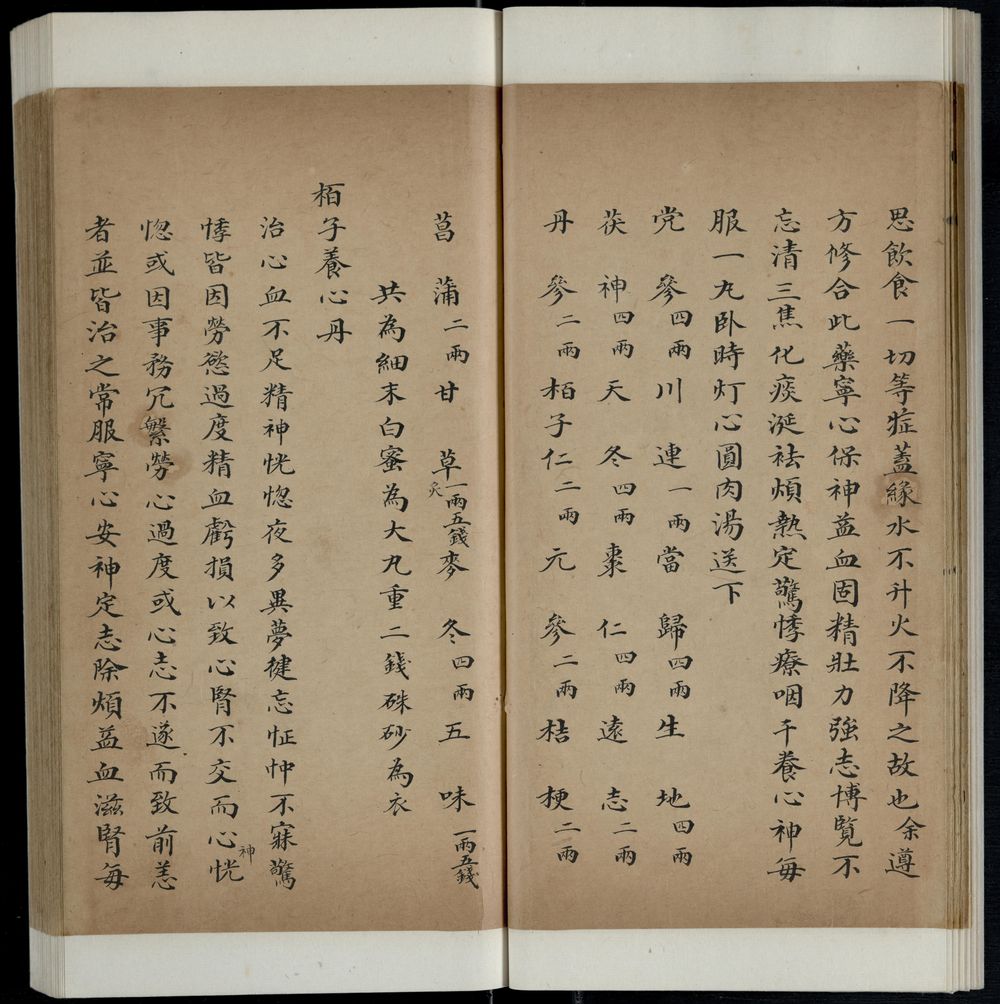 思飲食一切等症蓋緣水不升火不降之故也余遵
方修合此藥寧心保神益血固精壯力強志博覽不
忘清三焦化痰涎祛煩熱定驚悸療咽干養心神每
服一九卧時灯心圓肉湯送下
党參四兩川連一兩當歸四兩生地四兩
茯神四兩天冬四兩棗仁四兩遠志二兩
丹參二兩栢子仁二兩元參二兩桔梗二兩
菖蒲二兩甘草一兩五錢炙麥冬四兩五味一兩五錢
共為細末白蜜為大九重二錢硃砂為衣
栢子養心丹
治心血不足精神恍惚夜多異夢健忘怔忡不寐驚
悸皆因勞慾過度精血虧損以致心腎不交而心神恍
惚或因事務冗繁勞心過度或心志不遂而致前恙
者並皆治之常服寧心安神定志除煩益血滋腎每